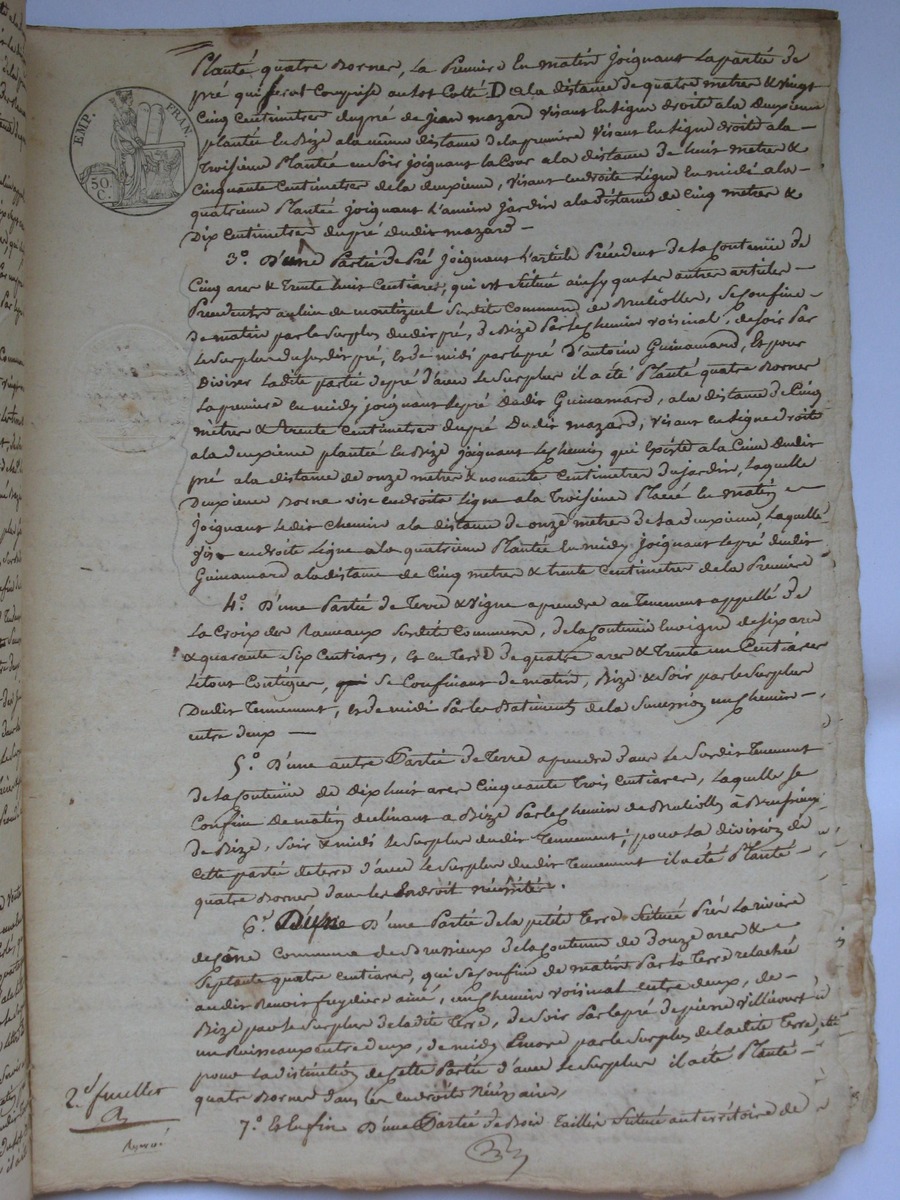 Planté quatre Bornes, La Premiere En matin joignant La partie de
pré qui serat Comprise au Lot Cotté D de la distance de quatre metres & vingt
Cinq Centimetres du pré de jean mazard visant En ligne droite a la Deuxieme
plantée En Bize a la même distance de la premiere visant En ligne droite a la
Troisieme Plantée en Soir joignant la Cour a la distance de huit metres &
Cinquante Centimetres de la deuxieme, visant en droite Ligne en midi a la
quatrieme Plantée joignant L'ancien jardin a la distance de Cinq metres &
Dix Centimetres du pré dudit mazard
3.° D'une Partie de Pré joignant L'article Précédent de la Contenüe de
Cinq ares & Trente huit Centiares, qui est Située ainsy que les autres articles
Precedents au lieu de Susdite Commune de Brulliolles, Se Confine
De matin par le Surplus dudit pré, de Bize Par le Chemin voisinal, de soir Par
Le Surplus du Susdit pré, et de midi par le pré D'antoine Guinamand, Et pour
Diviser Ladite partie de pré d'avec Le Surplus il a été Planté quatre Bornes
La premiere En midy joignant le pré Dudit Guinamard, a la distance de Cinq
metres & trente Centimetres du pré Dudit mazard, visant en Ligne droite
a la deuxieme plantée En Bize joignant le Chemin qui Existe a la Cime Dudit
pré a la distance de onze metres & nonante Centimetres du jardin, Laquelle
Deuxieme Borne vise en droite Ligne a la Troisieme Placée En matin
joignant Ledit Chemin a la distance de onze metres de La deuxieme, Laquelle
vise en droite Ligne a la quatrieme Plantée En midy joignant le pré dudit
Guinamard a la distance de Cinq metres & trente Centimetres de la Premiere
4.° D'une Partie de Terre & vigne a prendre au Tenement appellé de
La Croix des Rameaux Susdite Commune, de la Contenüe En vigne de six ares
& quarante Six Centiares, Et en Terre de quatre ares & Trente un Centiares
Le tout Contigue, Se Confinant de matin, Bize & Soir par le Surplus
Dudit Tennement, et de midi Par les Batiments de la Succession un Chemin
entre deux
5.° D'une autre Partie de Terre a prendre dans Le Susdit Tenement
de La Contenüe de Dix huit ares Cinquante Trois Centiares, Laquelle Se
Confine De matin declinant a Bize Par le Chemin de Brulliolles à
de Bize, Soir & midi Le Surplus dudit Tennement; pour La division de
Cette partie de terre d'avec Le Surplus dudit Tennement il a été Planté
quatre Bornes dans les Endroit nécessités.
6.° D'une Partie de la petite Terre Située Près La riviere
Commune de Brussieux de la Contenue de Douze ares &
Septante quatre centiares, qui Se Confine de matin Par La Terre relachée
audit Benoit ainé, un Chemin voisinal entre deux, de
Bize par le Surplus de ladite Terre, de Soir Par le pré de pierre Villecourt
un Ruisseaux entre deux, de midy Encore par le Surplus de Ladite Terre, et
pour La distinction de Cette Partie d'avec Le Surplus il a été Planté
quatre Bornes dans les endroits Nécessaires,
7.° Et Enfin D'une Partie de Bois Taillis Située au territoire de
2.d feuillet
EMP. FRAN.
50 C.